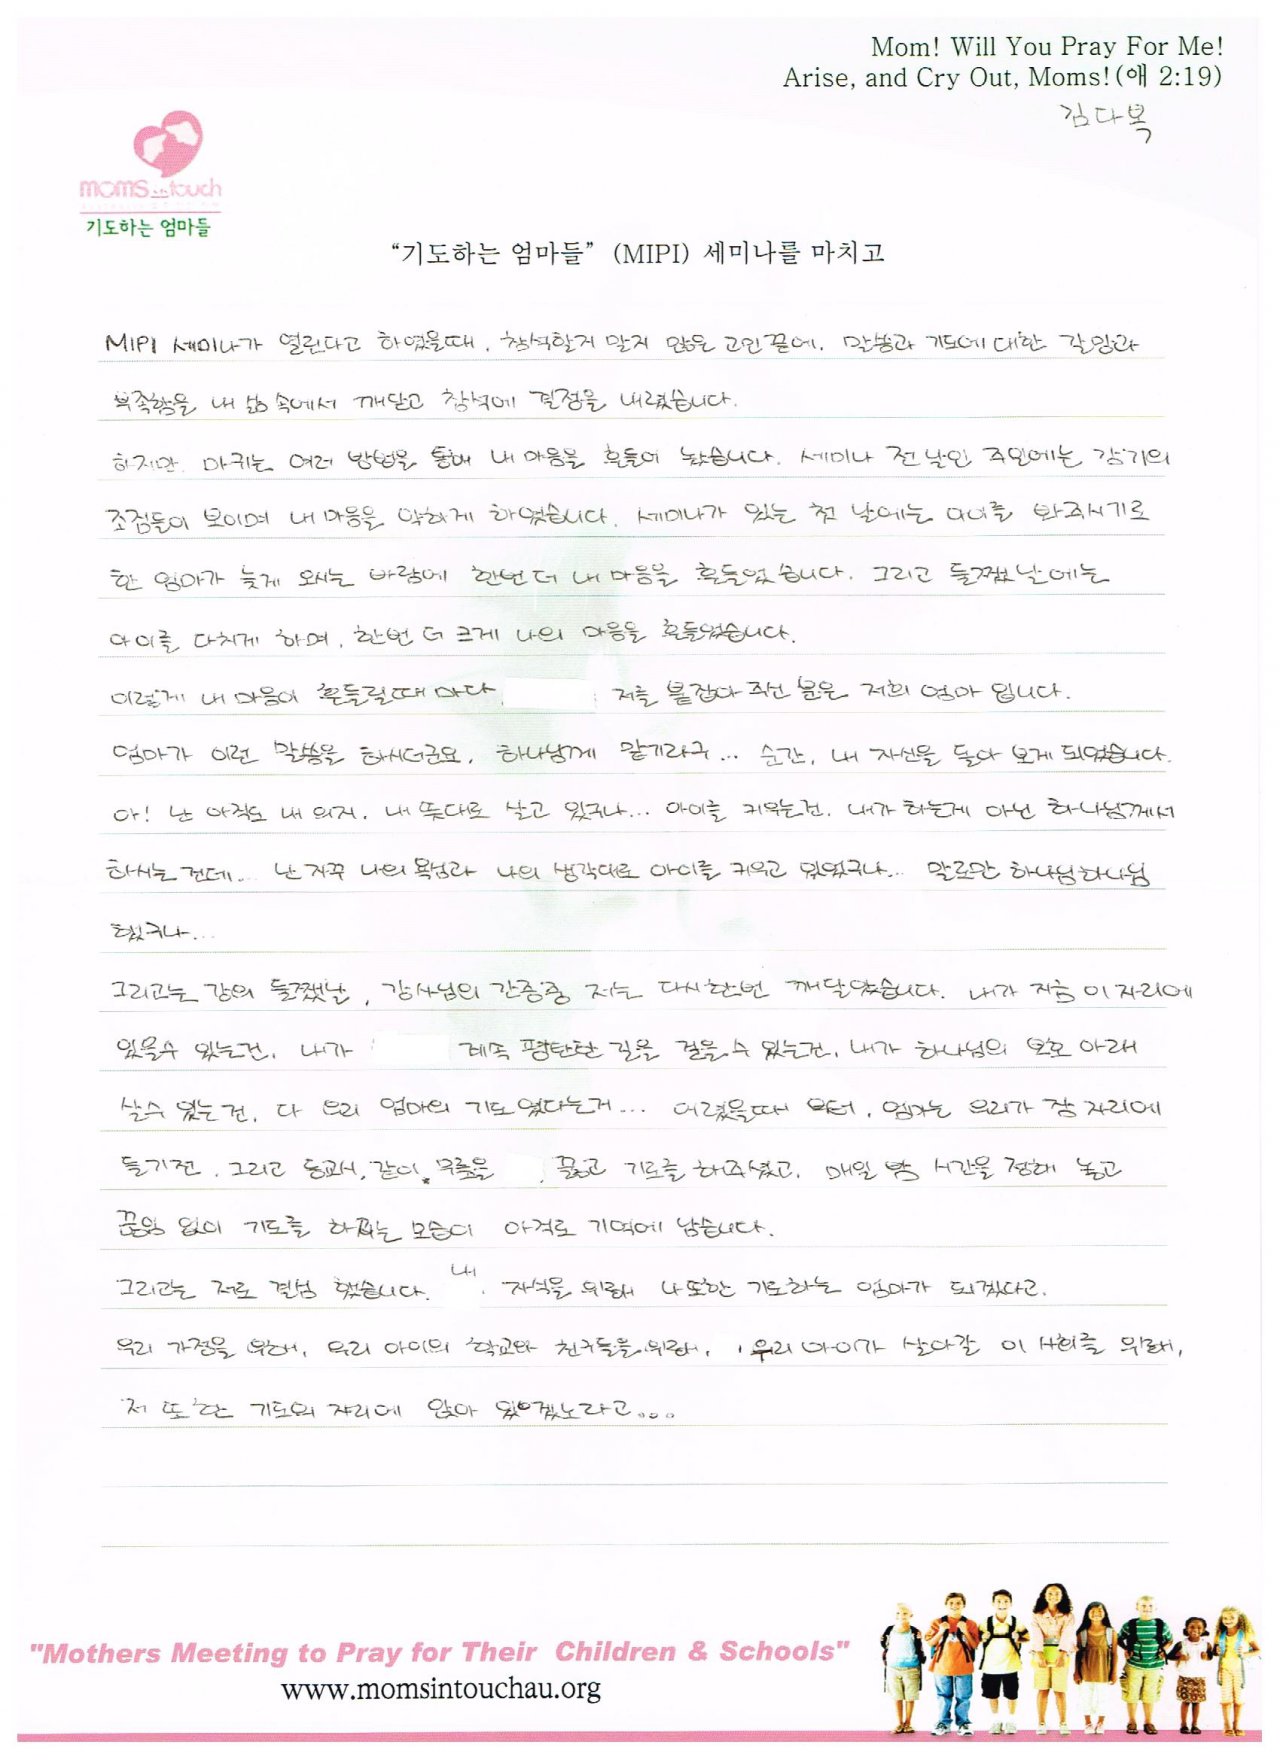 Mom! Will You Pray For Me!
Arise, and Cry Out, Moms!(애 2:19)
김다복
moms in touch
기도하는 엄마들
“기도하는 엄마들” (MIPI) 세미나를 마치고
MIPI 세미나가 열린다고 하였을때, 참석할지 말지 많은 고민끝에, 말씀과 기도에 대한 갈망과
부족함을 내 삶 속에서 깨닫고 참석에 결정을 내렸습니다.
하지만, 마귀는 여러 방법을 통해 내 마음을 흔들어 놨습니다. 세미나 전날인 주일에는 감기의
조짐들이 보이며 내 마음을 약하게 하였습니다. 세미나가 있는 첫 날에는 아이를 봐주시기로
한 엄마가 늦게 오시는 바람에 한번 더 내 마음을 흔들었습니다. 그리고 둘쨌날에는
아이를 다치게 하며, 한번 더 크게 나의 마음을 흔들었습니다.
이렇게 내 마음이 흔들릴때 마다, 저를 붙잡아 주신 분은 저희 엄마 입니다.
엄마가 이런 말씀을 하시더군요, 하나님께 맡기라구... 순간, 내 자신을 돌아 보게 되었습니다.
아! 난 아직도 내 의지, 내 뜻대로 살고 있구나... 아이를 키우는건, 내가 하는게 아닌 하나님께서
하시는 건데... 난 자꾸 나의 욕심과 나의 생각대로 아이를 키우고 있었구나... 말로만 하나님하나님
했구나...
그리고는 강의 둘쨌날, 강사님의 간증중 저는 다시한번 깨달았습니다. 내가 지금 이 자리에
있을수 있는건, 내가 계속 평탄한 길을 걸을 수 있는건, 내가 하나님의 보호 아래
살수 있는 건, 다 우리 엄마의 기도 였다는거... 어렸을때 부터, 엄마는 우리가 잠 자리에
들기전, 그리고 등교시, 같이 무릎을 꿇고 기도를 해주셨고, 매일 밤 시간을 정해 놓고
끊임 없이 기도를 하시는 모습이 아직도 기억에 남습니다.
그리고는 저도 결심 했습니다. 내 자식을 위해 나 또한 기도하는 엄마가 되겠다고.
우리 가정을 위해, 우리 아이의 학교와 친구들을 위해, 우리 아이가 살아갈 이 사회를 위해,
저 또한 기도의 자리에 앉아 있겠노라고...
"Mothers Meeting to Pray for Their Children & Schools"
www.momsintouchau.org